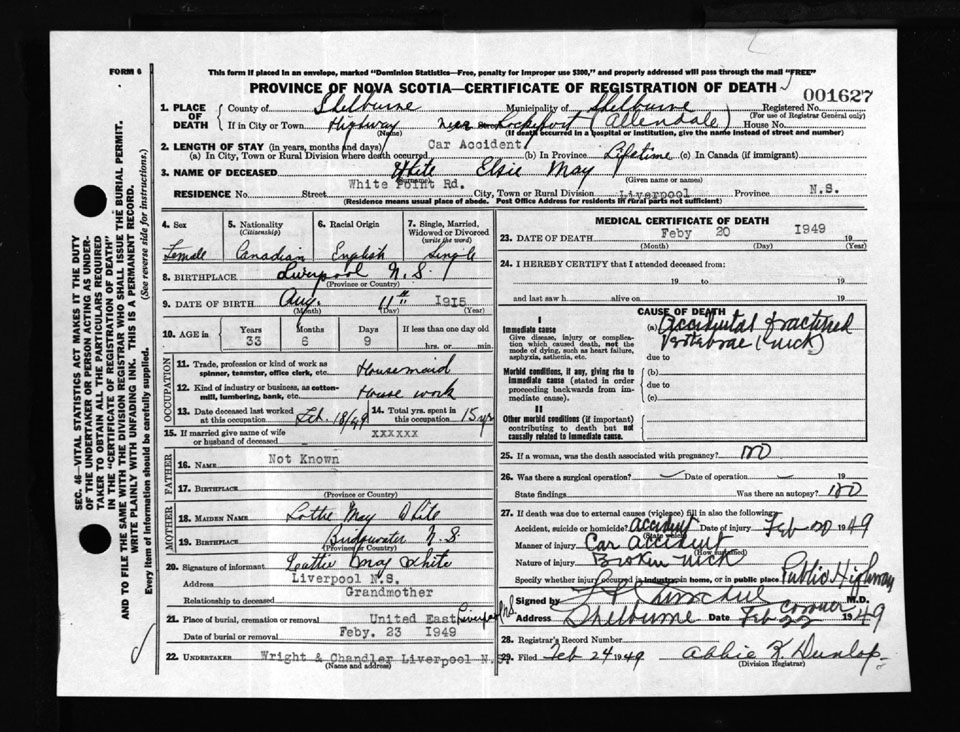 FORM 6
This form if placed in an envelope, marked "Dominion Statistics—Free, penalty for improper use $300," and properly addressed will pass through the mail "FREE"
PROVINCE OF NOVA SCOTIA—CERTIFICATE OF REGISTRATION OF DEATH
001627
1. PLACE OF DEATH
County of Shelburne Municipality of Shelburne Registered No.
(For use of Registrar General only)
If in City or Town Highway near Lockeport (Allendale) House No.
(Name) (If death occurred in a hospital or institution, give the name instead of street and number)
2. LENGTH OF STAY (in years, months and days) Car Accident
(a) In City, Town or Rural Division where death occurred (b) In Province Lifetime (c) In Canada (if immigrant)
3. NAME OF DECEASED White Elsie May
(Surname) (Given name or names)
RESIDENCE No. Street White Point Rd. City, Town or Rural Division Liverpool Province N.S.
(Residence means usual place of abode. Post Office Address for residents in rural parts not sufficient)
4. Sex Female
5. Nationality (Citizenship) Canadian
6. Racial Origin English
7. Single, Married, Widowed or Divorced (write the word) Single
8. BIRTHPLACE Liverpool N.S.
(Province or Country)
9. DATE OF BIRTH Aug. 11th 1915
(Month) (Day) (Year)
10. AGE in Years Months Days If less than one day old
33 6 9 hrs. or min.
OCCUPATION
11. Trade, profession or kind of work as spinner, teamster, office clerk, etc. Housemaid
12. Kind of industry or business, as cotton-mill, lumbering, bank, etc. House work
13. Date deceased last worked at this occupation Feb. 18/49
14. Total yrs. spent in this occupation 15 yr
15. If married give name of wife or husband of deceased xxxxxx
FATHER
16. NAME Not Known
17. BIRTHPLACE
(Province or Country)
MOTHER
18. MAIDEN NAME Lottie May White
19. BIRTHPLACE Bridgewater N.S.
(Province or Country)
20. Signature of informant Lattie May White
Address Liverpool N.S.
Relationship to deceased Grandmother
21. Place of burial, cremation or removal United East Liverpool N.S.
Date of burial or removal Feby. 23 1949
22. UNDERTAKER Wright & Chandler Liverpool N.S.
(Name and address)
MEDICAL CERTIFICATE OF DEATH
23. DATE OF DEATH Feby 20 1949 19
(Month) (Day) (Year)
24. I HEREBY CERTIFY that I attended deceased from:
19 to 19
and last saw h alive on 19
CAUSE OF DEATH
I
Immediate cause
Give disease, injury or complication which caused death, not the mode of dying, such as heart failure, asphyxia, asthenia, etc.
(a) Accidental fractured vertebrae (neck)
due to
Morbid conditions, if any, giving rise to immediate cause (stated in order proceeding backwards from immediate cause).
(b)
due to
(c)
II
Other morbid conditions (if important) contributing to death but not causally related to immediate cause.
25. If a woman, was the death associated with pregnancy? no
26. Was there a surgical operation? Date of operation 19
State findings Was there an autopsy? no
27. If death was due to external causes (violence) fill in also the following:
Accident, suicide or homicide? accident Date of injury Feb 20 1949
(State which)
Manner of injury Car accident
(How sustained)
Nature of injury Broken neck
Specify whether injury occured in industry, in home, or in public place Public Highway
Signed by M.D.
Coroner
Address Shelburne Date Feb 22 1949
28. Registrar's Record Number
29. Filed Feb 24 1949 Abbie K. Dunlop
(Division Registrar)
SEC. 46—VITAL STATISTICS ACT MAKES IT THE DUTY
OF THE UNDERTAKER OR PERSON ACTING AS UNDER-
TAKER TO OBTAIN ALL THE PARTICULARS REQUIRED
IN THE "CERTIFICATE OF REGISTRATION OF DEATH"
AND TO FILE THE SAME WITH THE DIVISION REGISTRAR WHO SHALL ISSUE THE BURIAL PERMIT.
WRITE PLAINLY WITH UNFADING INK. THIS IS A PERMANENT RECORD.
Every item of information should be carefully supplied. (See reverse side for instructions.)